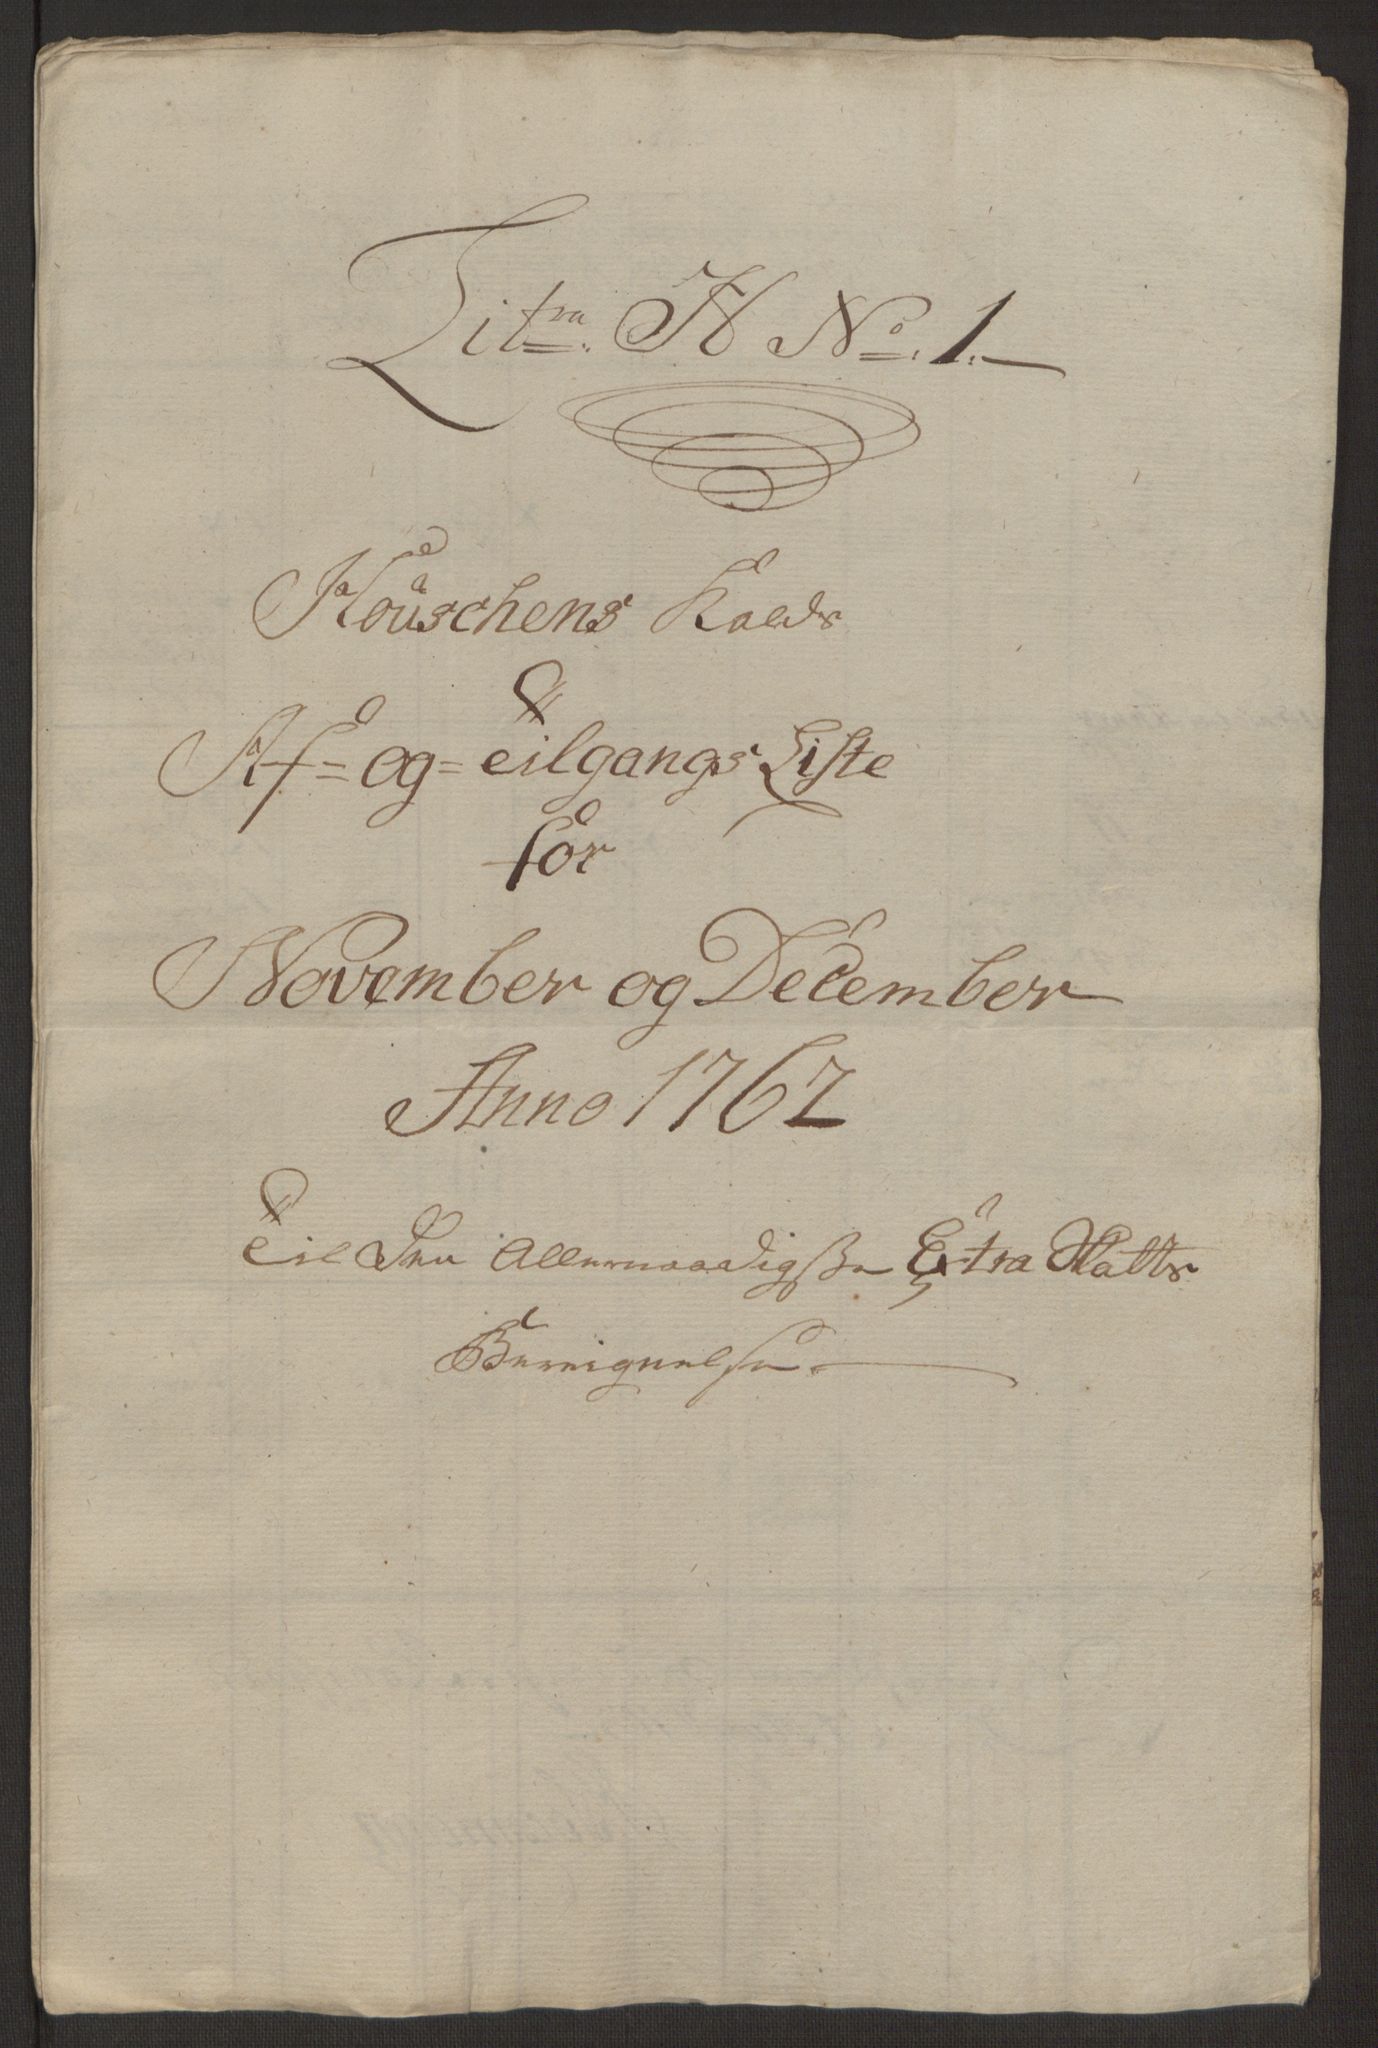 Litra. H No. 1.
Houschens Kalds
Af- og- Tilgangs Liste
for
November og December
Anno 1762
Til Den Allernaadigste Extra Skatts
Bereignelse.